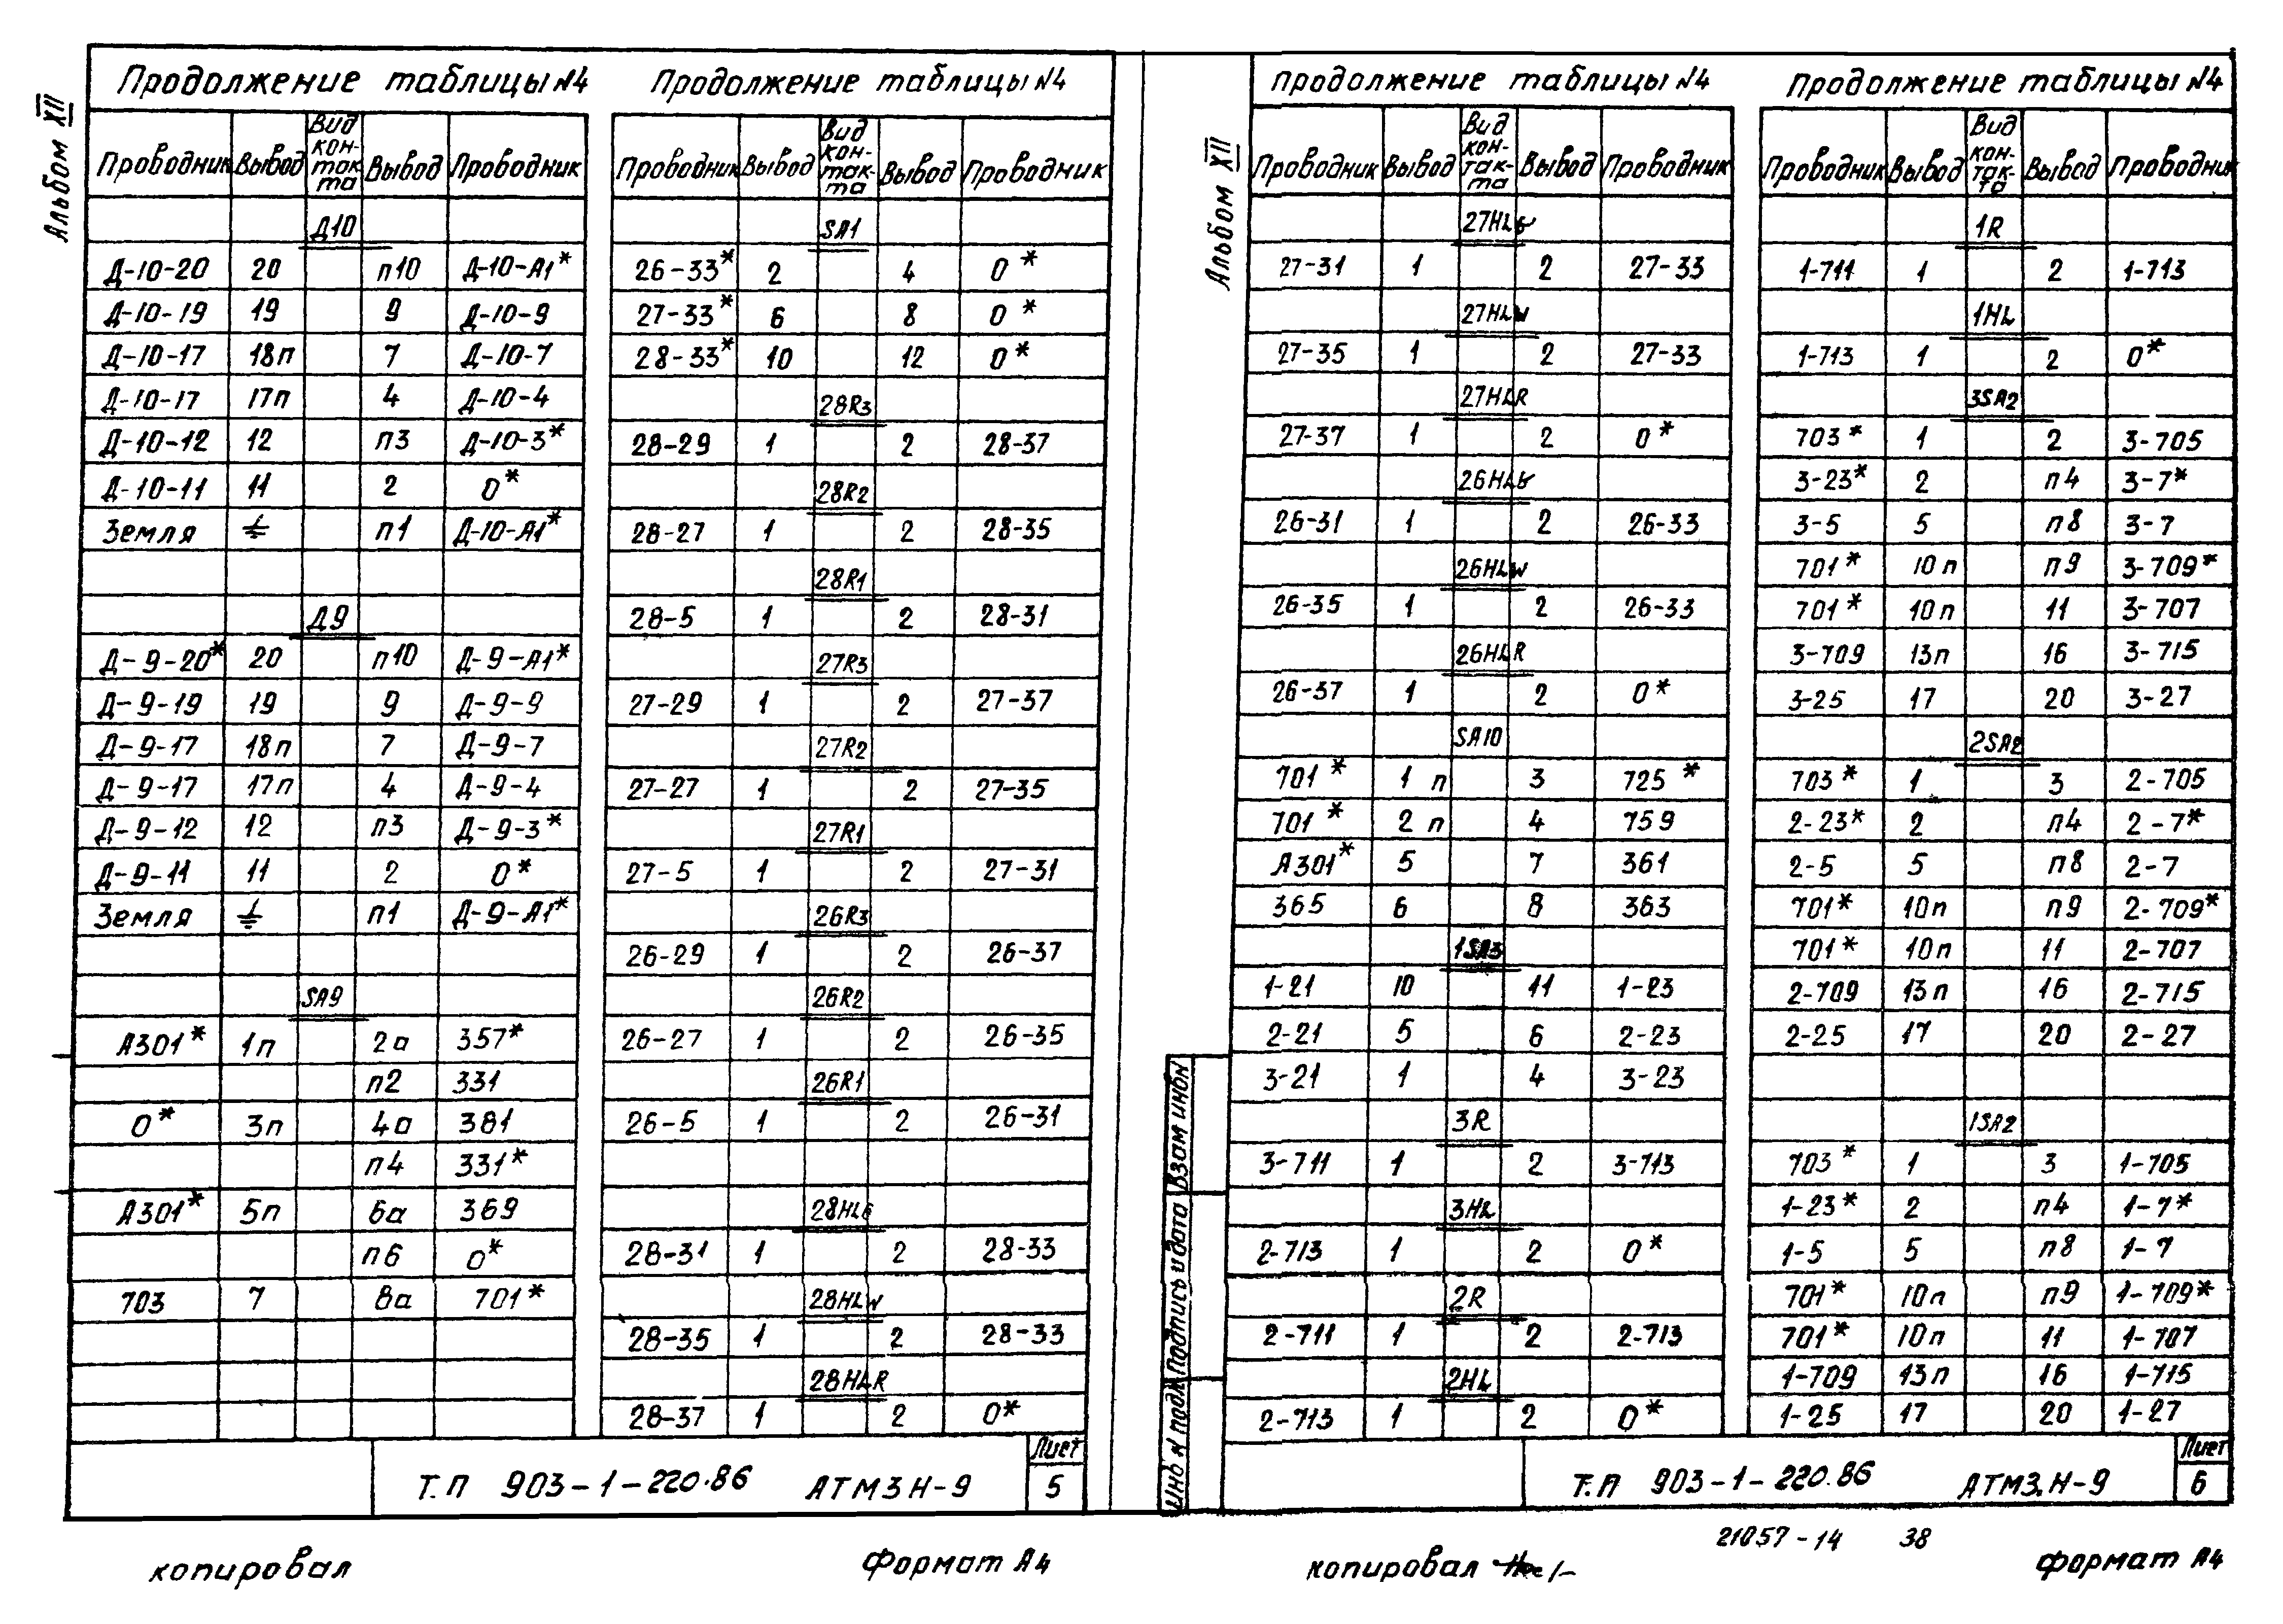 Альбом XII
Продолжение таблицы N4
Проводник Вывод Вид кон-такта Вывод Проводник
Д10
Д-10-20 20 п10 Д-10-А1*
Д-10-19 19 9 Д-10-9
Д-10-17 18п 7 Д-10-7
Д-10-17 17п 4 Д-10-4
Д-10-12 12 п3 Д-10-3*
Д-10-11 11 2 0*
Земля ⏚ п1 Д-10-А1*
Д9
Д-9-20* 20 п10 Д-9-А1*
Д-9-19 19 9 Д-9-9
Д-9-17 18п 7 Д-9-7
Д-9-17 17п 4 Д-9-4
Д-9-12 12 п3 Д-9-3*
Д-9-11 11 2 0*
Земля ⏚ п1 Д-9-А1*
SA9
А301* 1п 2а 357*
п2 331
0* 3п 4а 381
п4 331*
А301* 5п 6а 369
п6 0*
703 7 8а 701*
Продолжение таблицы N4
Проводник Вывод Вид кон-так-та Вывод Проводник
SA1
26-33* 2 4 0*
27-33* 6 8 0*
28-33* 10 12 0*
28R3
28-29 1 2 28-37
28R2
28-27 1 2 28-35
28R1
28-5 1 2 28-31
27R3
27-29 1 2 27-37
27R2
27-27 1 2 27-35
27R1
27-5 1 2 27-31
26R3
26-29 1 2 26-37
26R2
26-27 1 2 26-35
26R1
26-5 1 2 26-31
28HLG
28-31 1 2 28-33
28HLW
28-35 1 2 28-33
28HLR
28-37 1 2 0*
Т.П 903-1-220.86 АТМ3Н-9
Лист
5
копировал
Формат А4
Альбом XII
продолжение таблицы N4
Проводник Вывод Вид кон-так-та Вывод Проводник
27HLG
27-31 1 2 27-33
27HLW
27-35 1 2 27-33
27HLR
27-37 1 2 0*
26HLG
26-31 1 2 26-33
26HLW
26-35 1 2 26-33
26HLR
26-37 1 2 0*
SA10
701* 1п 3 725*
701* 2п 4 759
А301* 5 7 361
365 6 8 363
1SA3
1-21 10 11 1-23
2-21 5 6 2-23
3-21 1 4 3-23
3R
3-711 1 2 3-713
3HL
2-713 1 2 0*
2R
2-711 1 2 2-713
2HL
2-713 1 2 0*
Продолжение таблицы N4
Проводник Вывод Вид кон-так-та Вывод Проводник
1R
1-711 1 2 1-713
1HL
1-713 1 2 0*
3SA2
703* 1 2 3-705
3-23* 2 п4 3-7*
3-5 5 п8 3-7
701* 10п п9 3-709*
701* 10п 11 3-707
3-709 13п 16 3-715
3-25 17 20 3-27
2SA2
703* 1 3 2-705
2-23* 2 п4 2-7*
2-5 5 п8 2-7
701* 10п п9 2-709*
701* 10п 11 2-707
2-709 13п 16 2-715
2-25 17 20 2-27
1SA2
703* 1 3 1-705
1-23* 2 п4 1-7*
1-5 5 п8 1-7
701* 10п п9 1-709*
701* 10п 11 1-707
1-709 13п 16 1-715
1-25 17 20 1-27
Инв N подл Подпись и дата Взам инвN
Т.П 903-1-220.86 АТМ3.Н-9
Лист
6
21057-14 38
копировал
формат А4